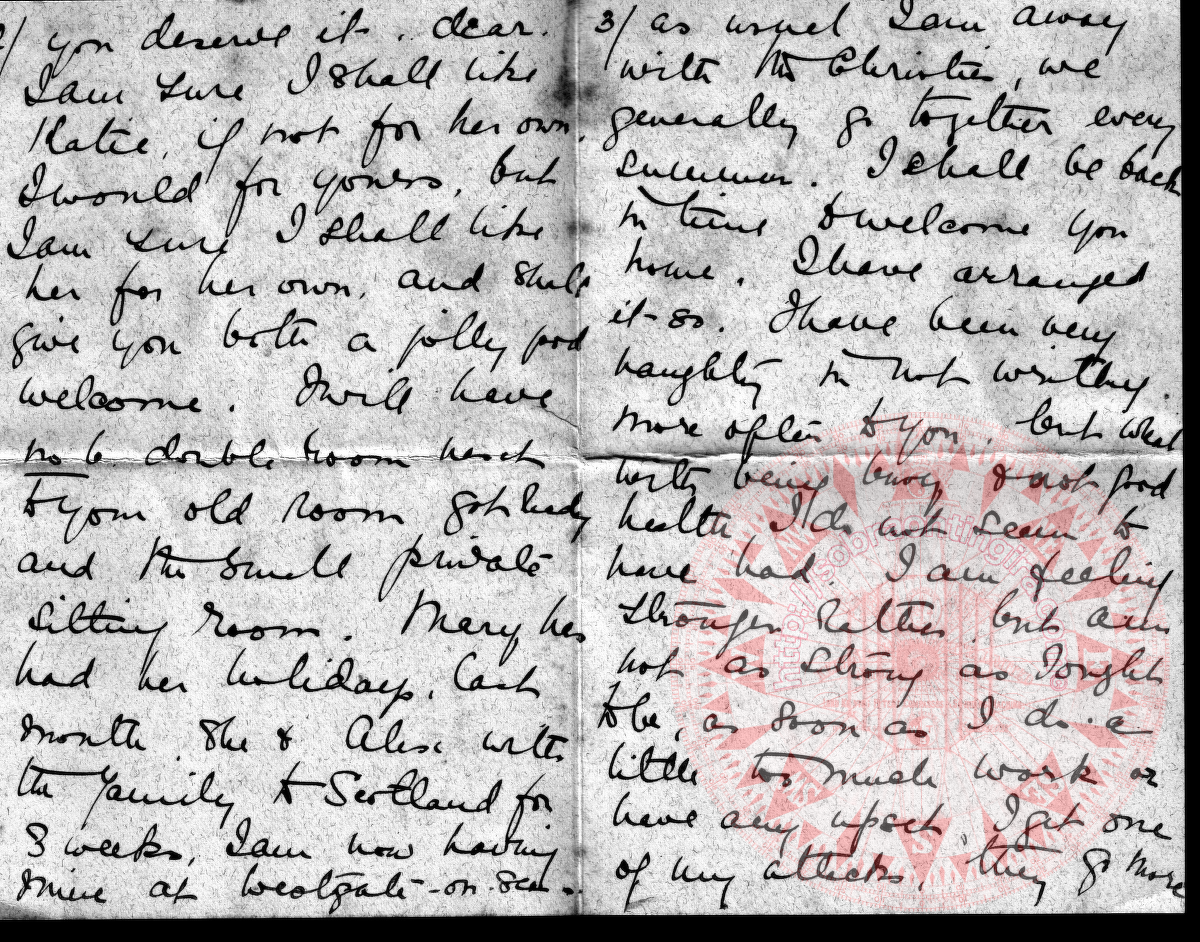 2/ you deserve it, dear.
I am sure I shall like
Katie, if not for her own,
I would for yours, but
I am sure I shall like
her for her own, and shall
give you both a jolly good
welcome. I will have
no 6 double room next
to your old room got ready
and the small private
sitting room. Mary has
had her holidays, last
month, she & Alex with
the family to Scotland for
3 weeks, I am now having
mine at Westgate-on-Sea.
3/ as usual I am away
with the Christies, we
generally go together every
summer. I shall be back
in time to welcome you
home. I have arranged
it so. I have been very
naughty in not writing
more often to you, but what
with being busy & not good
health I do not seem to
have had. I am feeling
stronger rather, but am
not as strong as I ought
to be, as soon as I do a
little too much work or
have any upset, I get one
of my attacks, they go more